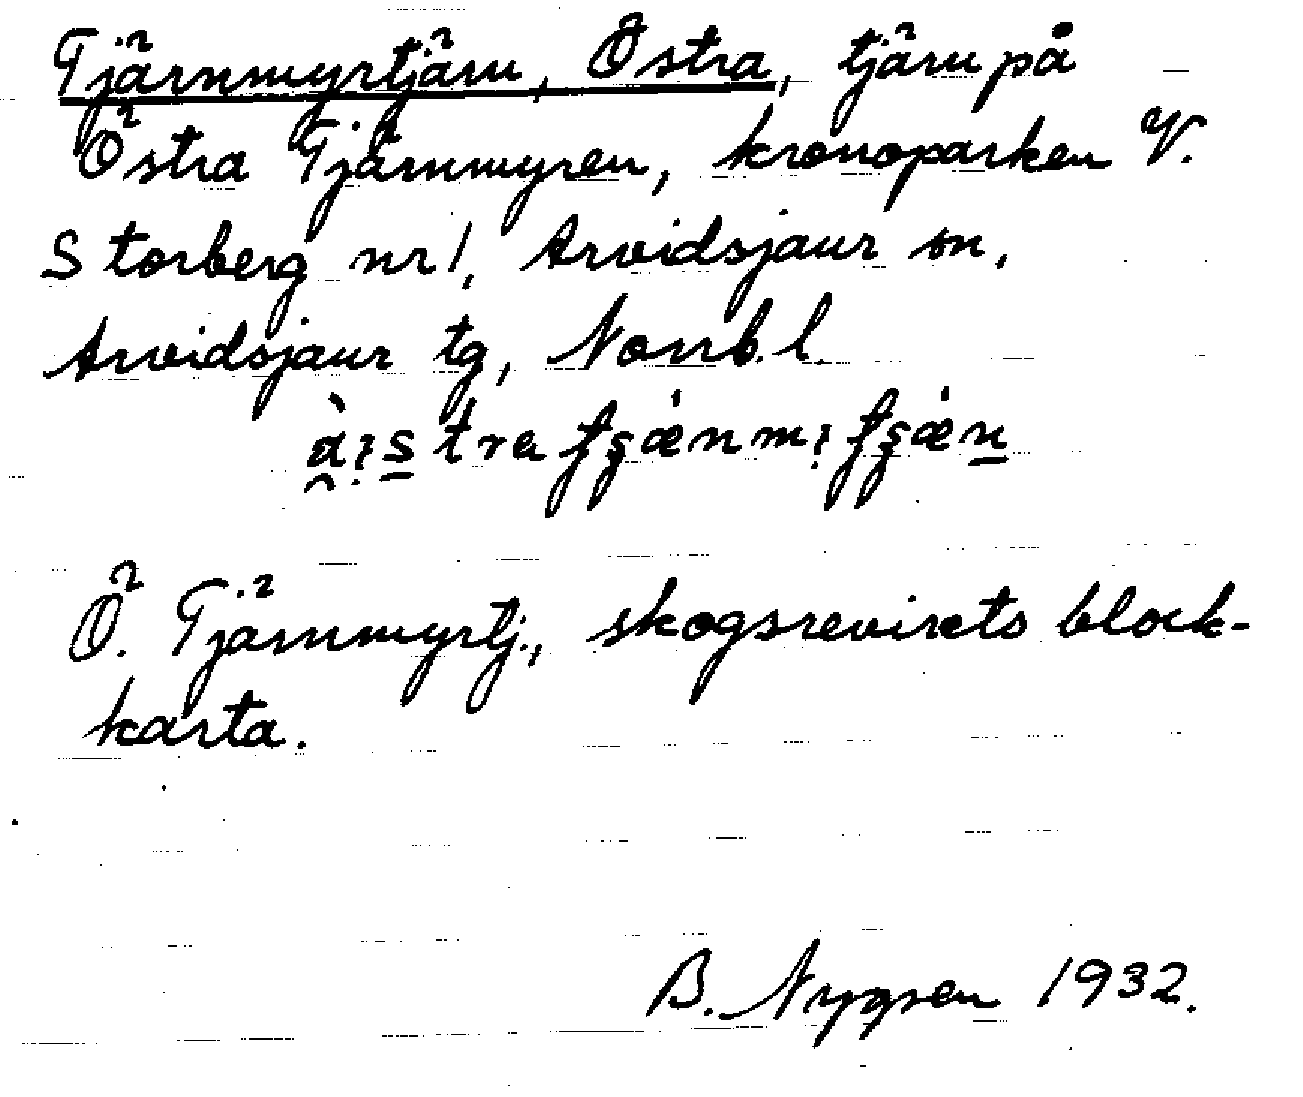 Tjärnmyrtjärn, Östra, tjärn på
Östra Tjärnmyren, kronoparken V.
Storberg nr 1, Arvidsjaur sn,
Arvidsjaur tg, Norrb. l.
Ö. Tjärnmyrtj., skogsrevirets block-
karta.
B. Nygren 1932.